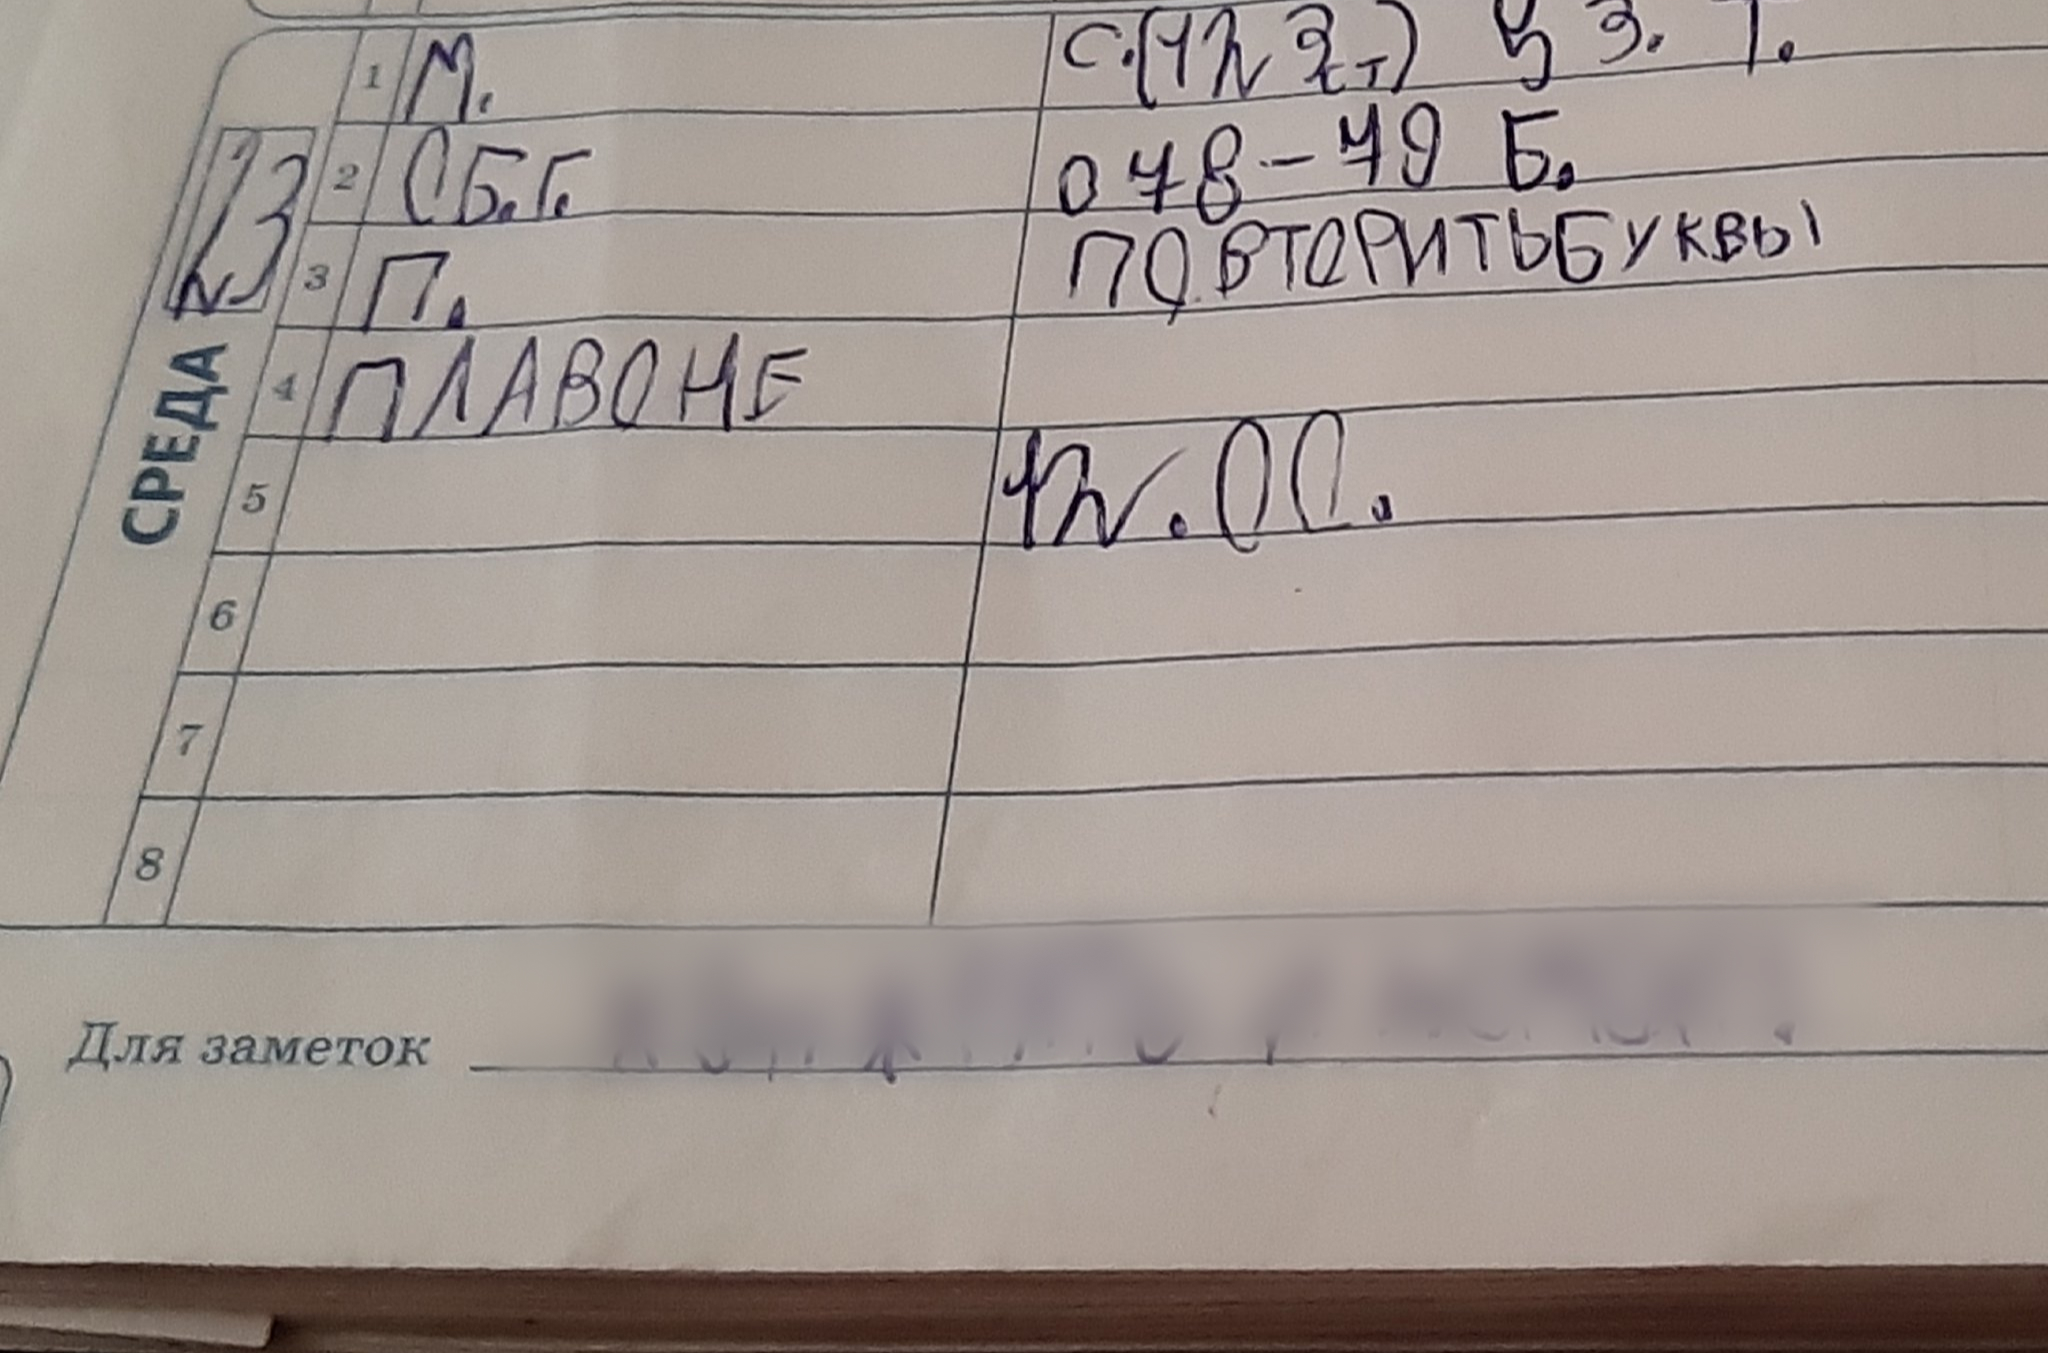 СРЕДА 23
1 М. С.(12 3 т) У З. Т.
2 ОБ.Г. 078-79 Б.
3 П. ПОВТОРИТЬ БУКВЫ
4 ПЛАВОНЕ
5 12.00.
6
7
8
Для заметок